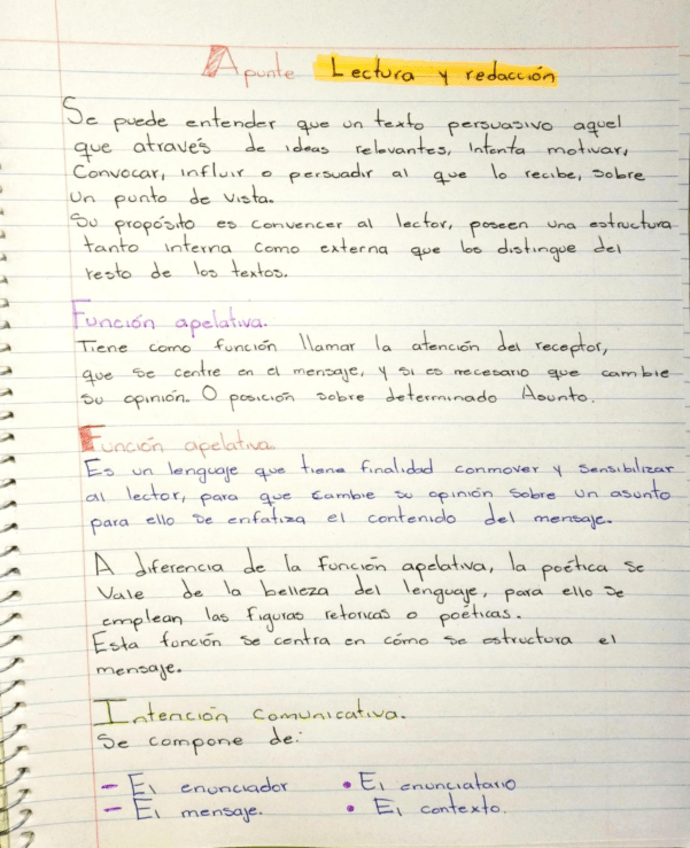 Apunte Lectura y redacción
Se puede entender que un texto persuasivo aquel
que através de ideas relevantes, Intenta motivar,
Convocar, influir o persuadir al que lo recibe, sobre
un punto de vista.
Su propósito es convencer al lector, poseen una estructura
tanto interna como externa que los distingue del
resto de los textos.
Función apelativa.
Tiene como función llamar la atención del receptor,
que se centre en el mensaje, y si es necesario que cambie
su opinión. O posición sobre determinado Asunto.
Función apelativa.
Es un lenguaje que tiene finalidad conmover y sensibilizar
al lector, para que cambie su opinión sobre un asunto
para ello se enfatiza el contenido del mensaje.
A diferencia de la función apelativa, la poética se
Vale de la belleza del lenguaje, para ello se
emplean las figuras retoricas o poéticas.
Esta función se centra en cómo se estructura el
mensaje.
Intención comunicativa.
Se compone de:
- El enunciador • El enunciatario
- El mensaje. • El contexto.